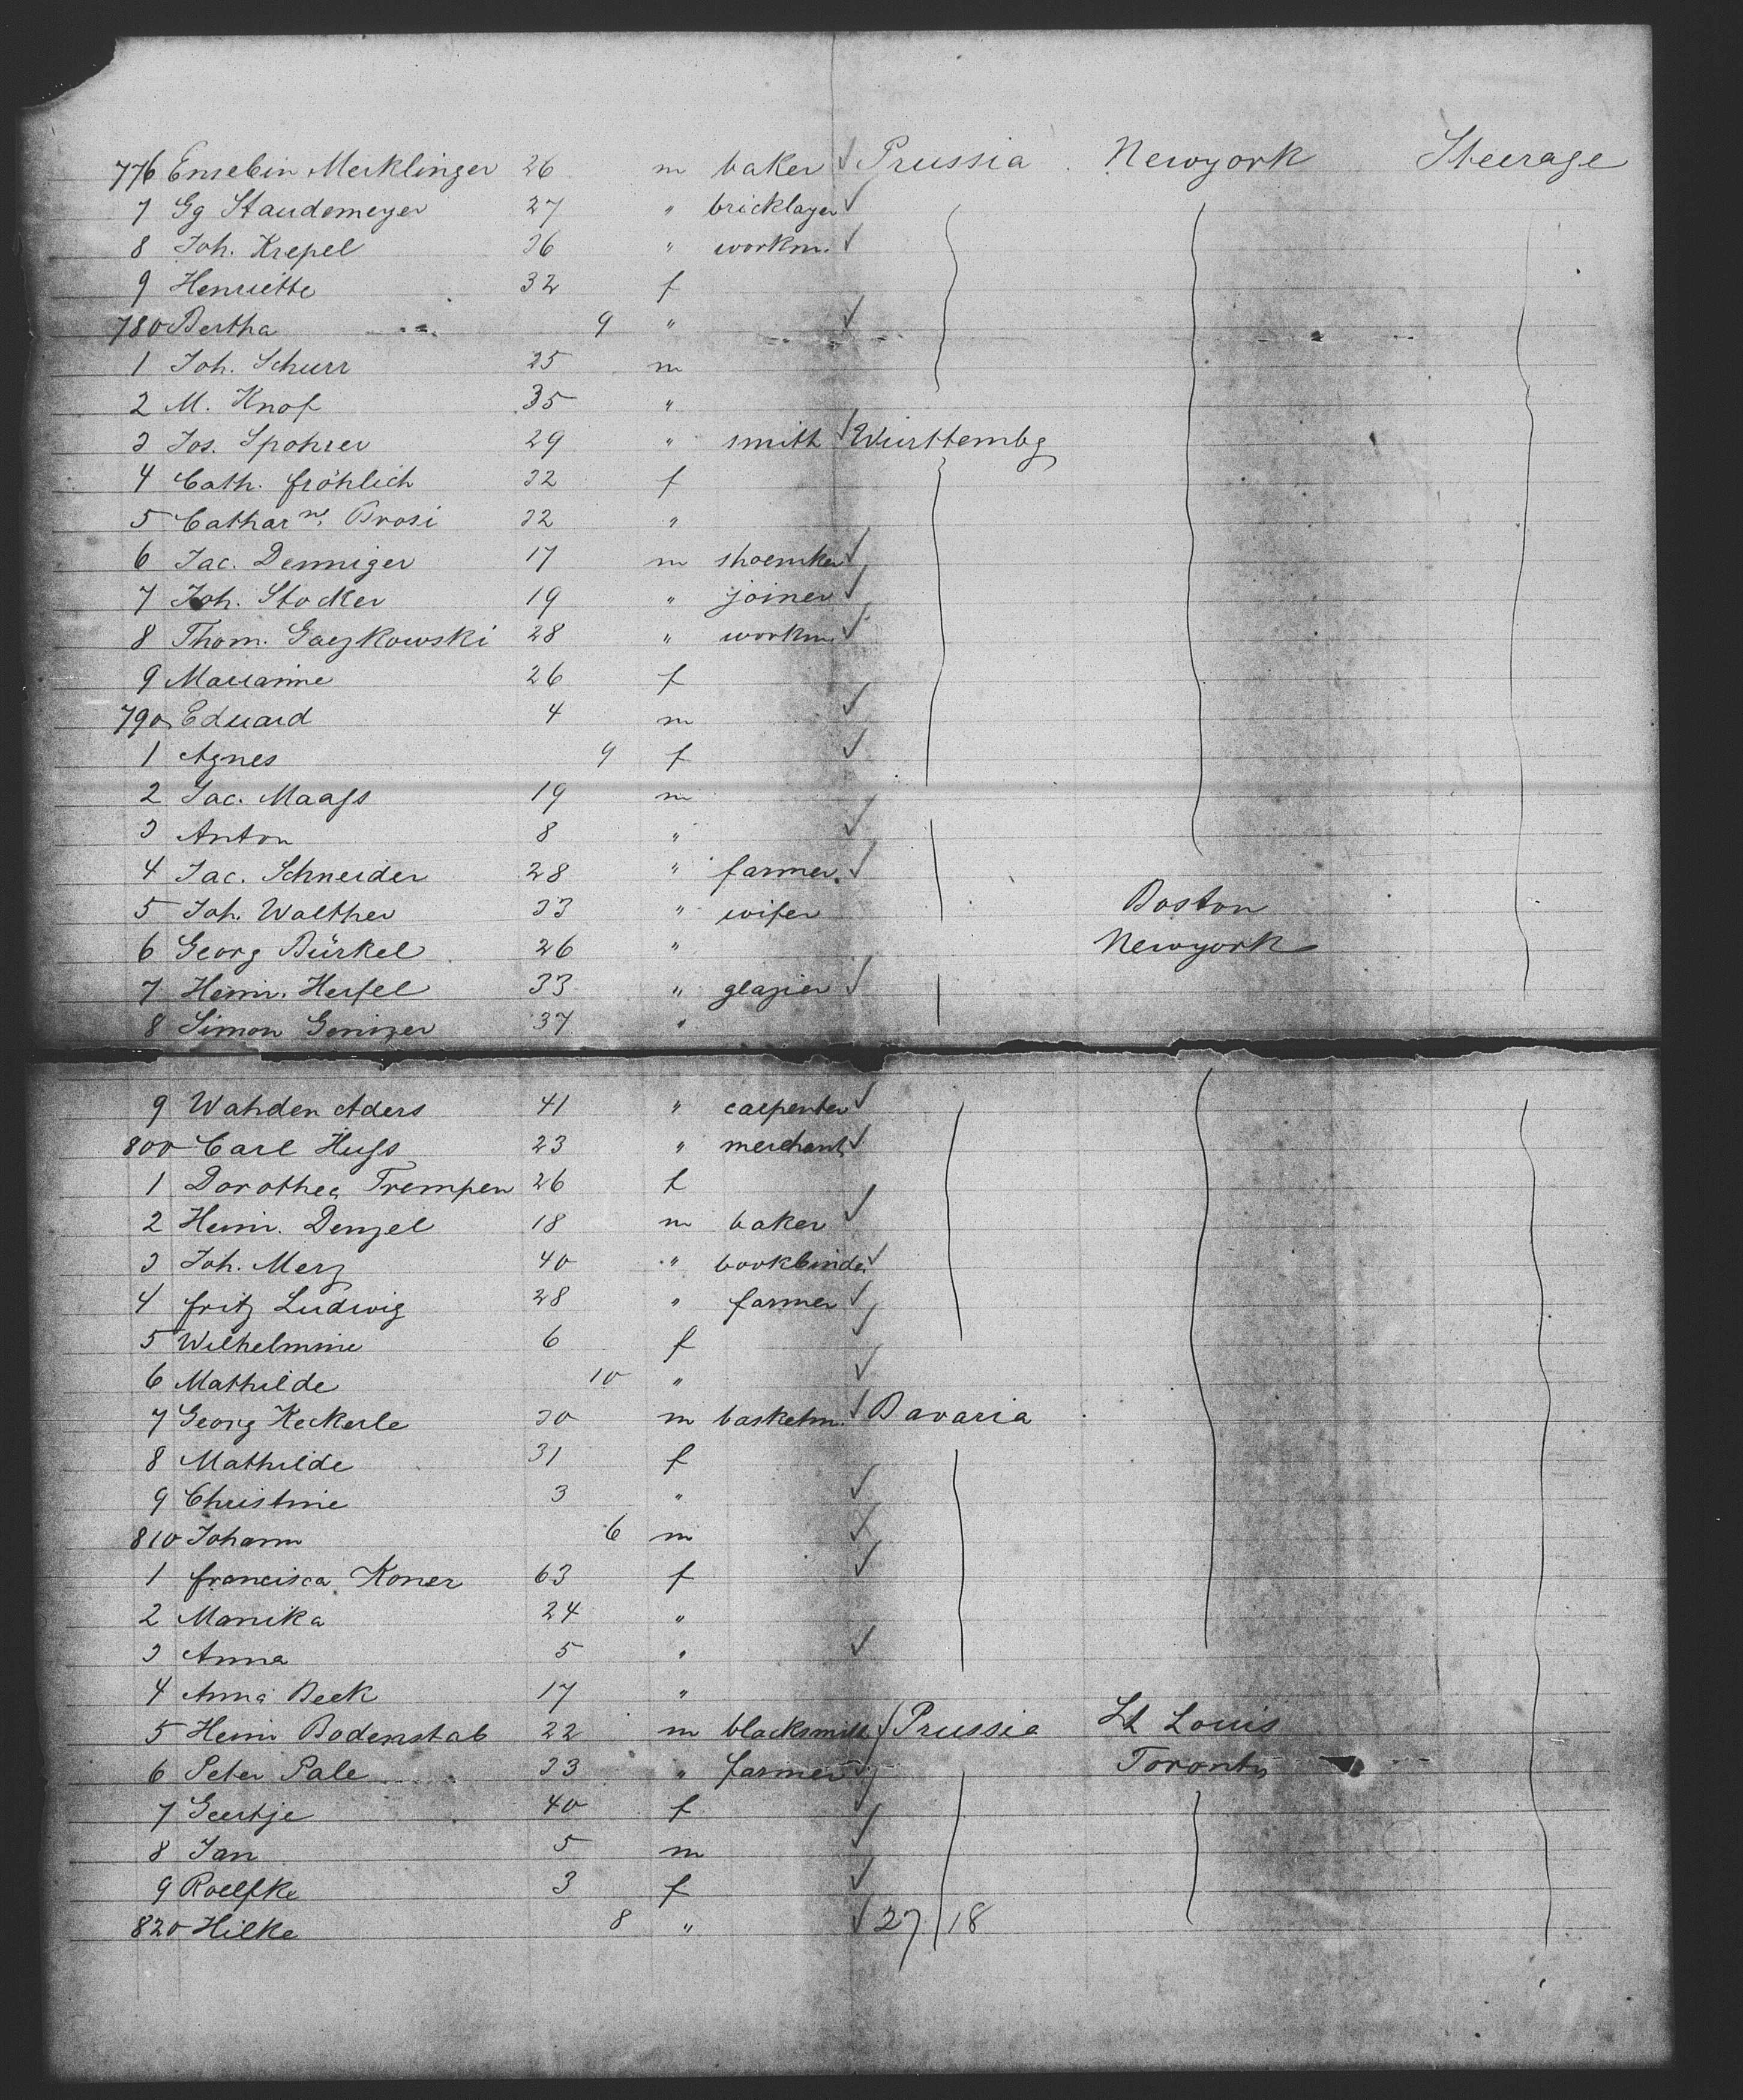 776 Eusebin Merklinger 26 m baker ✓ Prussia Newyork Steerage
7 Gg Staudemeyer 27 " bricklayer ✓
8 Joh. Krepel 36 " workm. ✓
9 Henriette 32 f
780 Bertha 9 " ✓
1 Joh. Schurr 25 m
2 M. Knof 35 "
3 Jos. Spohrer 29 " smith ✓ Württembg
4 Cath. fröhlich 32 f
5 Catharne. Brosi 32 "
6 Jac. Denniger 17 m shoemker ✓
7 Joh. Stocker 19 " joiner ✓
8 Thom. Gaczkowski 28 " workm. ✓
9 Marianne 26 f
790 Eduard 4 m ✓
1 Agnes 9 f ✓
2 Jac. Maaſs 19 m
3 Anton 8 " ✓
4 Jac. Schneider 28 " farmer ✓
5 Joh. Walther 33 " wifer Boston
6 Georg Bürkel 26 " Newyork
7 Heinr. Herfel 33 " glazier ✓
8 Simon 37 "
9 Wahden Aders 41 " carpenter ✓
800 Carl Huſs 23 " merchant ✓
1 Dorothea Trempen 26 f
2 Heinr. Denzel 18 m baker ✓
3 Joh. Merz 40 " bookbinder ✓
4 fritz Ludwig 28 " farmer ✓
5 Wilhelmine 6 f ✓
6 Mathilde 10 " ✓
7 Georg Keckerle 30 m basketm. ✓ Bavaria
8 Mathilde 31 f
9 Christine 3 " ✓
810 Johann 6 m ✓
1 francisca Koner 63 f ✓
2 Monika 24 "
3 Anna 5 " ✓
4 Anna Beck 17 "
5 Heinr Bodenstab 22 m blacksmith ✓ Prussia St Louis
6 Peter Pale 33 " farmer ✓ Toronto
7 Geertje 40 f ✓
8 Jan 5 m ✓
9 Roelfke 3 f ✓
820 Hilke 8 " ✓ 27/18